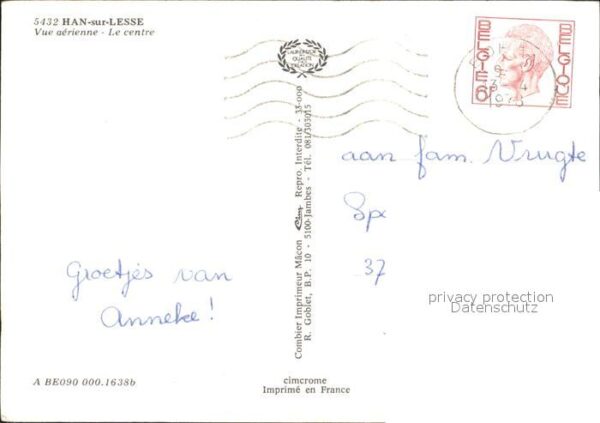 5432 HAN-sur-LESSE
Vue aérienne - Le centre
BELGIE
BELGIQUE
6F
aan fam. Vrugte
Spx
37
Groetjes van
Anneke!
Combier Imprimeur Mâcon Repro. Interdite - 35-000
R. Goblet, B.P. 10 - 5100-Jambes - Tél. 081/303015
privacy protection
Datenschutz
A BE090 000.1638b
cimcrome
Imprimé en France